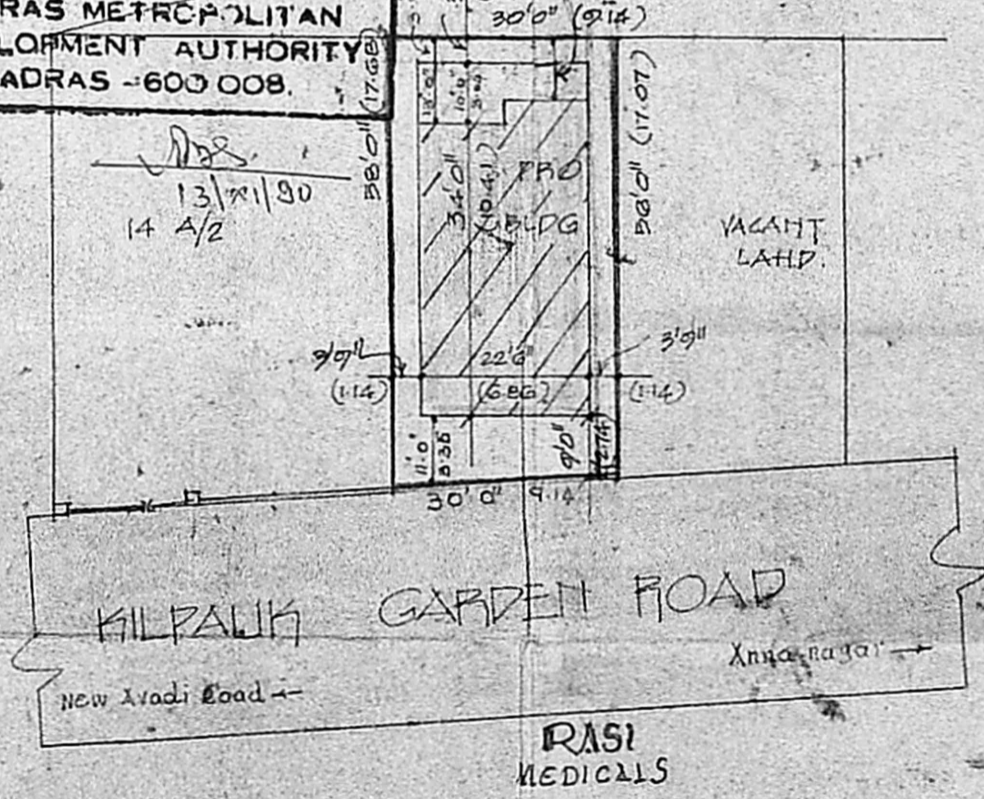 RAS METROPOLITAN
LOPMENT AUTHORITY
ADRAS -600 008.
13/XI/90
14 A/2
30'0" (9.14)
58'0" (17.68)
56'0" (17.07)
34'0"
(10.41)
PRO
BLDG
VACANT
LAND.
3'9"
(1.14)
22'6"
(6.86)
3'9"
(1.14)
11'.0"
3.35
9'0"
2.74
30'0" 9.14
KILPAUK GARDEN ROAD
Anna-nagar
New Avadi Road
RASI
MEDICALS